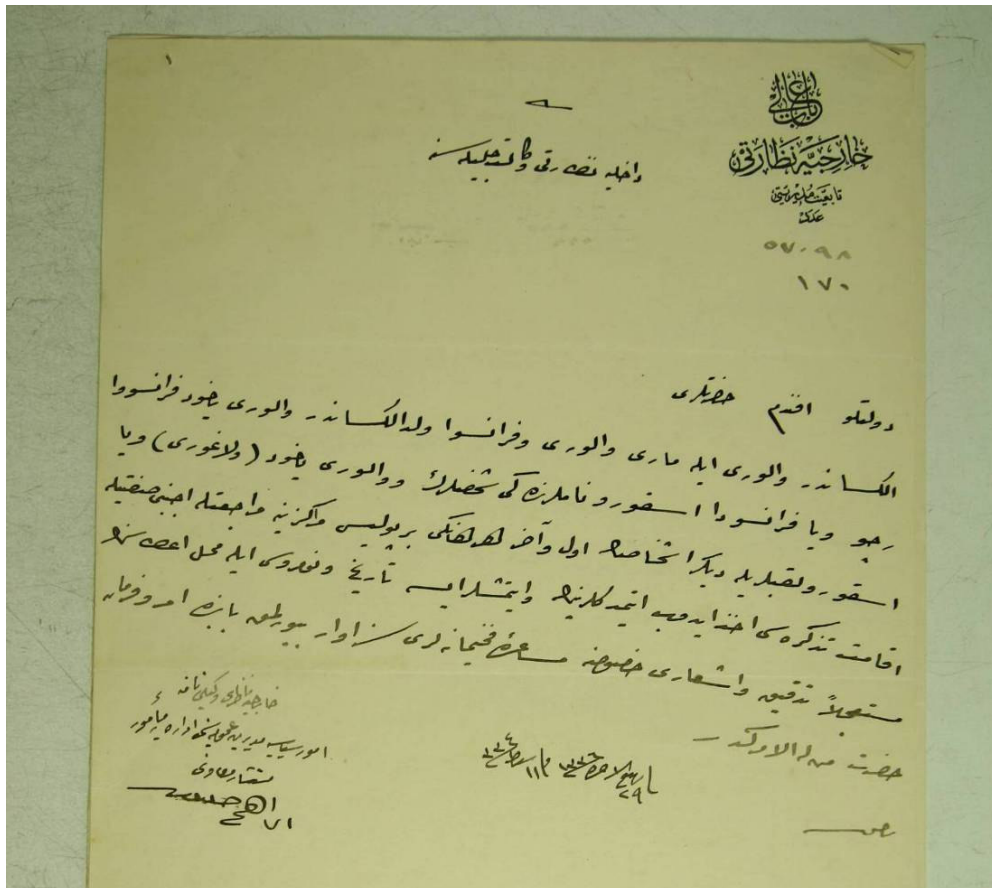 باب عالی
خارجیه نظارتی
تابعیت مدیریتی
عدد
٥٧٠٩٨
١٧٠
١
داخلیه نظارتی وكالت جلیله سنه
دولتلو افندم حضرتلری
الكساندر والوری ایله ماری والوری وفرانسوا ولد الكساندر والوری یاخود فرانسووا
رچو ویا فرانسودا اسقورو ناملرنده كی شخصلرك ووالوری یاخود (ولاغوری) ویا
اسقورو لقبلریله دیكر اشخاصك اول وآخر هر هانكی بر پولیس مركزینه مراجعتله اجنبی صفتیله
اقامت تذكره سی اخذ ایدوب ایتمدكلرینك وایتمشلر ایسه تاریخ ونومروسی ایله محل اعطاسنك
مستعجلاً تدقیق واشعاری خصوصنه مساعدهٔ فخیمانه لری سزاوار بیورلمق بابنده امر وفرمان
حضرت من له الامركدر
فی ٢٩ ربیع الاخر ١٣٣٤ فی ١١ شباط
خارجیه ناظری وكیلی نامنه
امور سیاسیه مدیریت عمومیه سی اداره سنه مأمور
مستشار معاونی